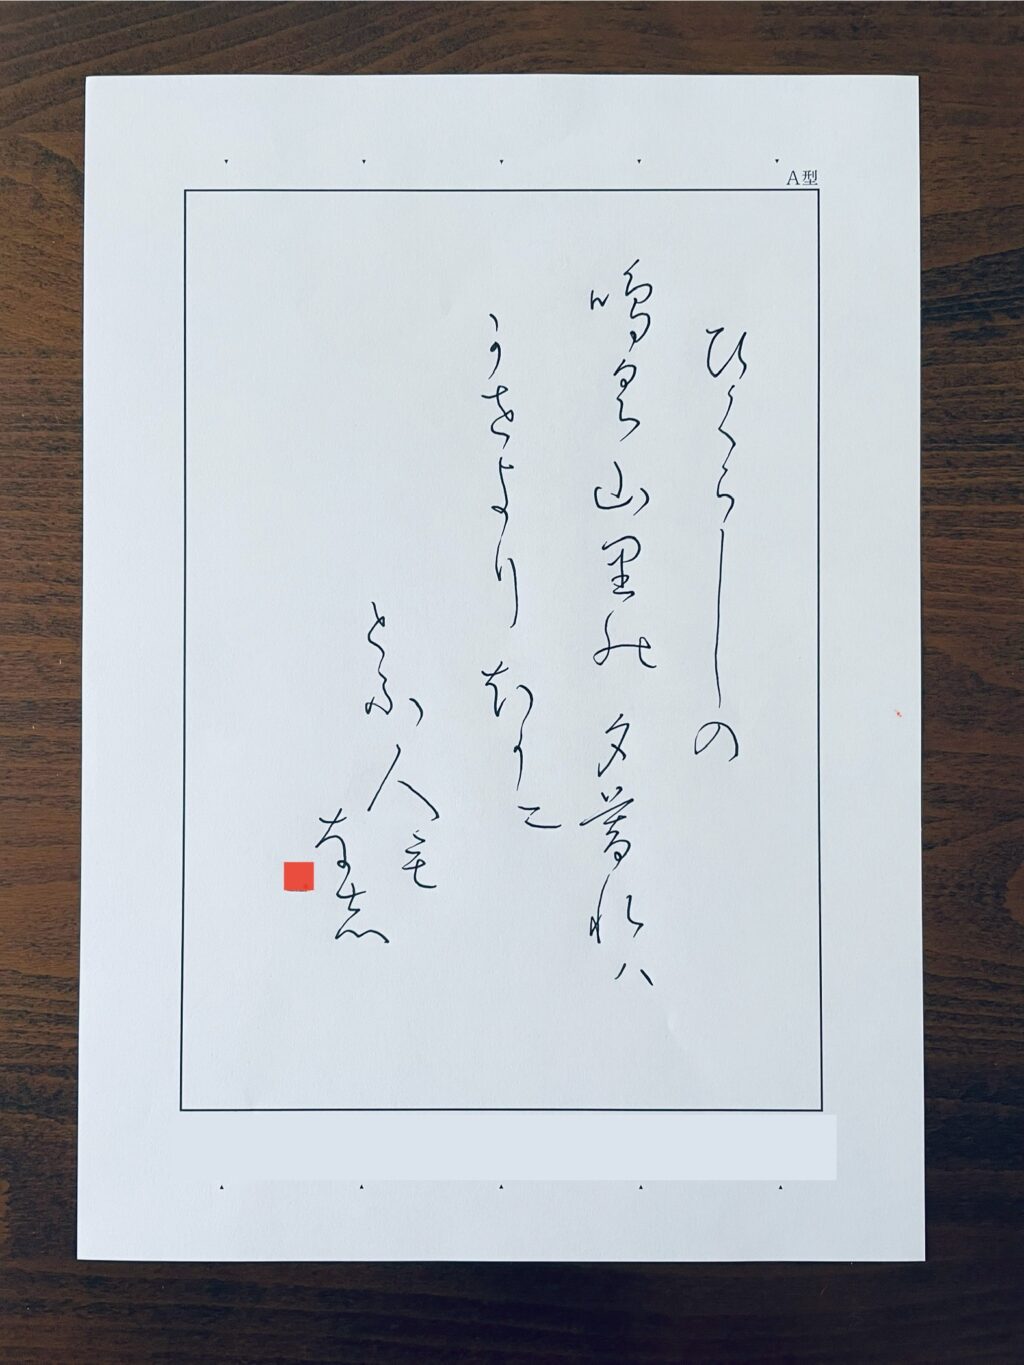 A型
ひくらしの
鳴く山里の夕暮れは
かせよりほかに
とふ人も
なし